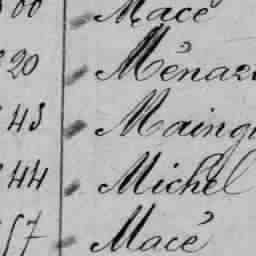 00 Macé
20 Ménaz
43 Maingu
44 Michel
57 Macé